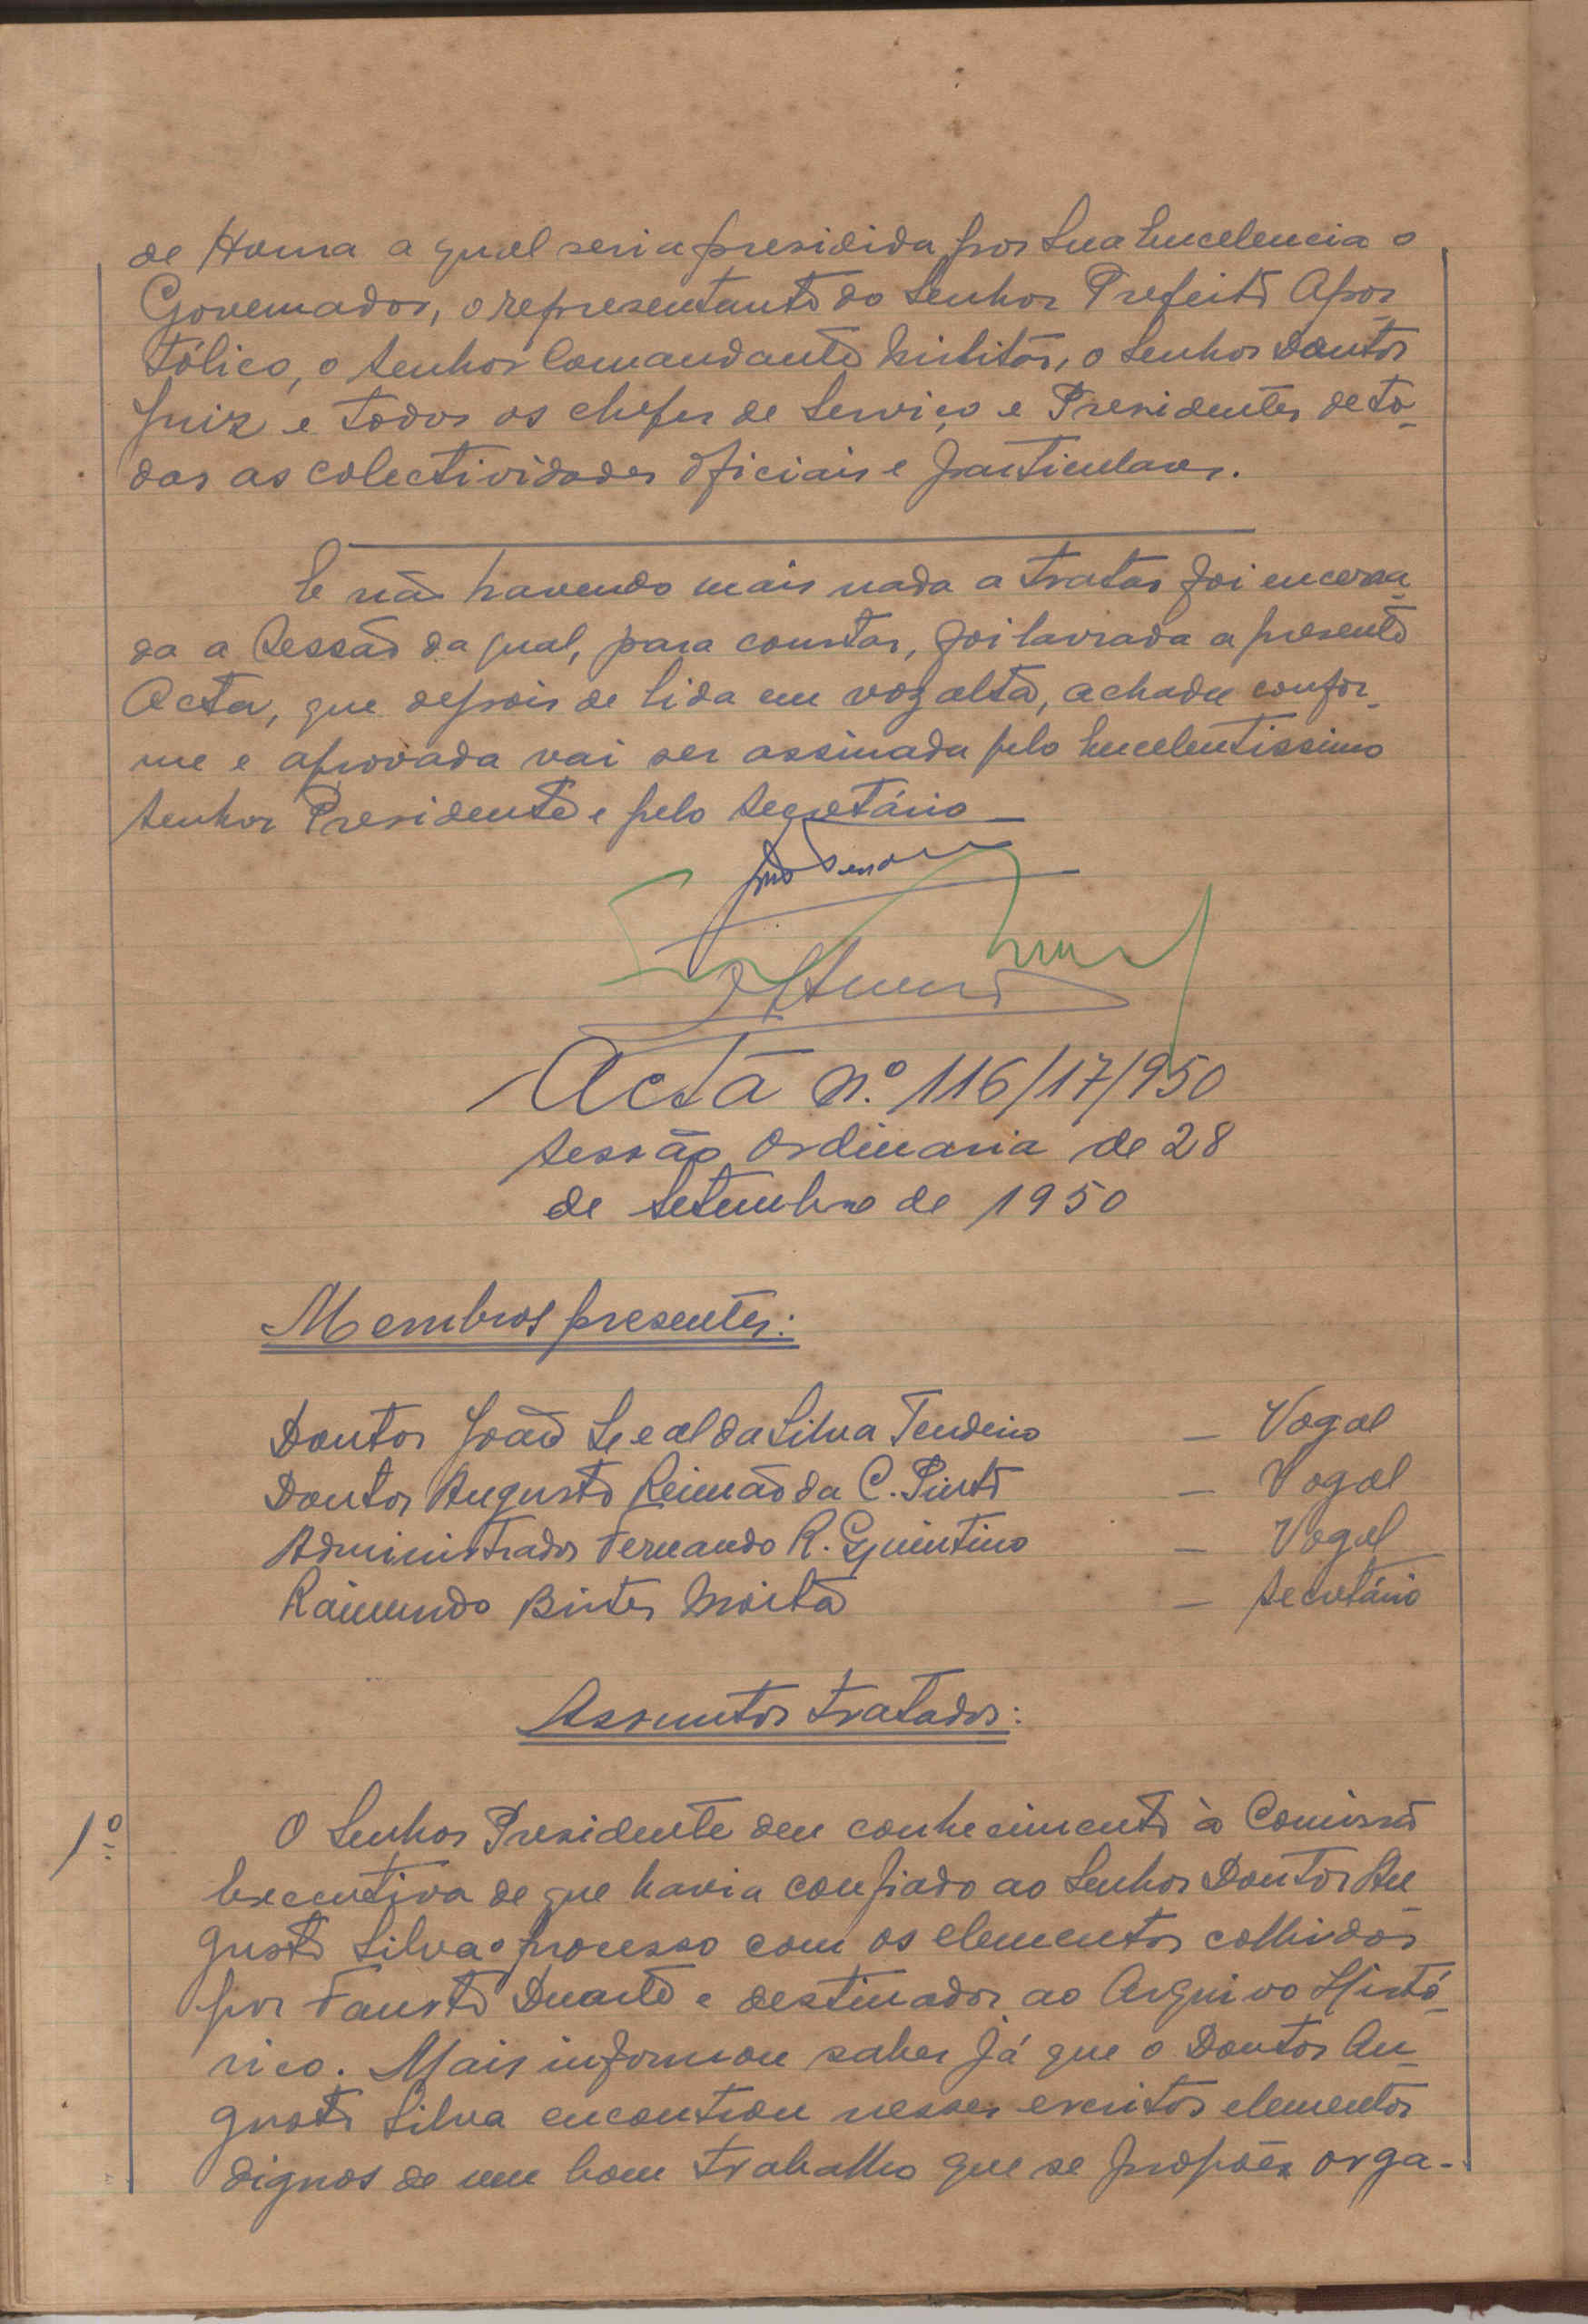 de Honra a qual seria presidida por Sua Excelencia o
Governador, o representante do Senhor Prefeito Apos-
tólico, o Senhor Comandante Militar, o Senhor Doutor
Juiz e todos os chefes de Serviço e Presidentes de to-
das as colectividades oficiais e particulares.
E não havendo mais nada a tratar foi encerra-
da a Sessão da qual, para constar, foi lavrada a presente
Acta, que depois de lida em voz alta, achada confor-
me e aprovada vai ser assinada pelo Excelentissimo
Senhor Presidente e pelo Secretário
Acta n.º 116/17/950
Sessão Ordinaria de 28
de Setembro de 1950
Membros presentes:
Doutor João Leal da Silva Tendeiro — Vogal
Doutor Augusto Reimão da C. Pinto — Vogal
Administrador Fernando R. Quintino — Vogal
Raimundo Moita — Secretário
Assuntos tratados:
1º O Senhor Presidente deu conhecimento à Comissão
Executiva de que havia confiado ao Senhor Doutor Au-
gusto Silva o processo com os elementos colhidos
por Fausto Duarte e destinados ao Arquivo Histó-
rico. Mais informou saber já que o Doutor Au-
gusto Silva encontrou nesses escritos elementos
dignos de um bom trabalho que se propões orga-